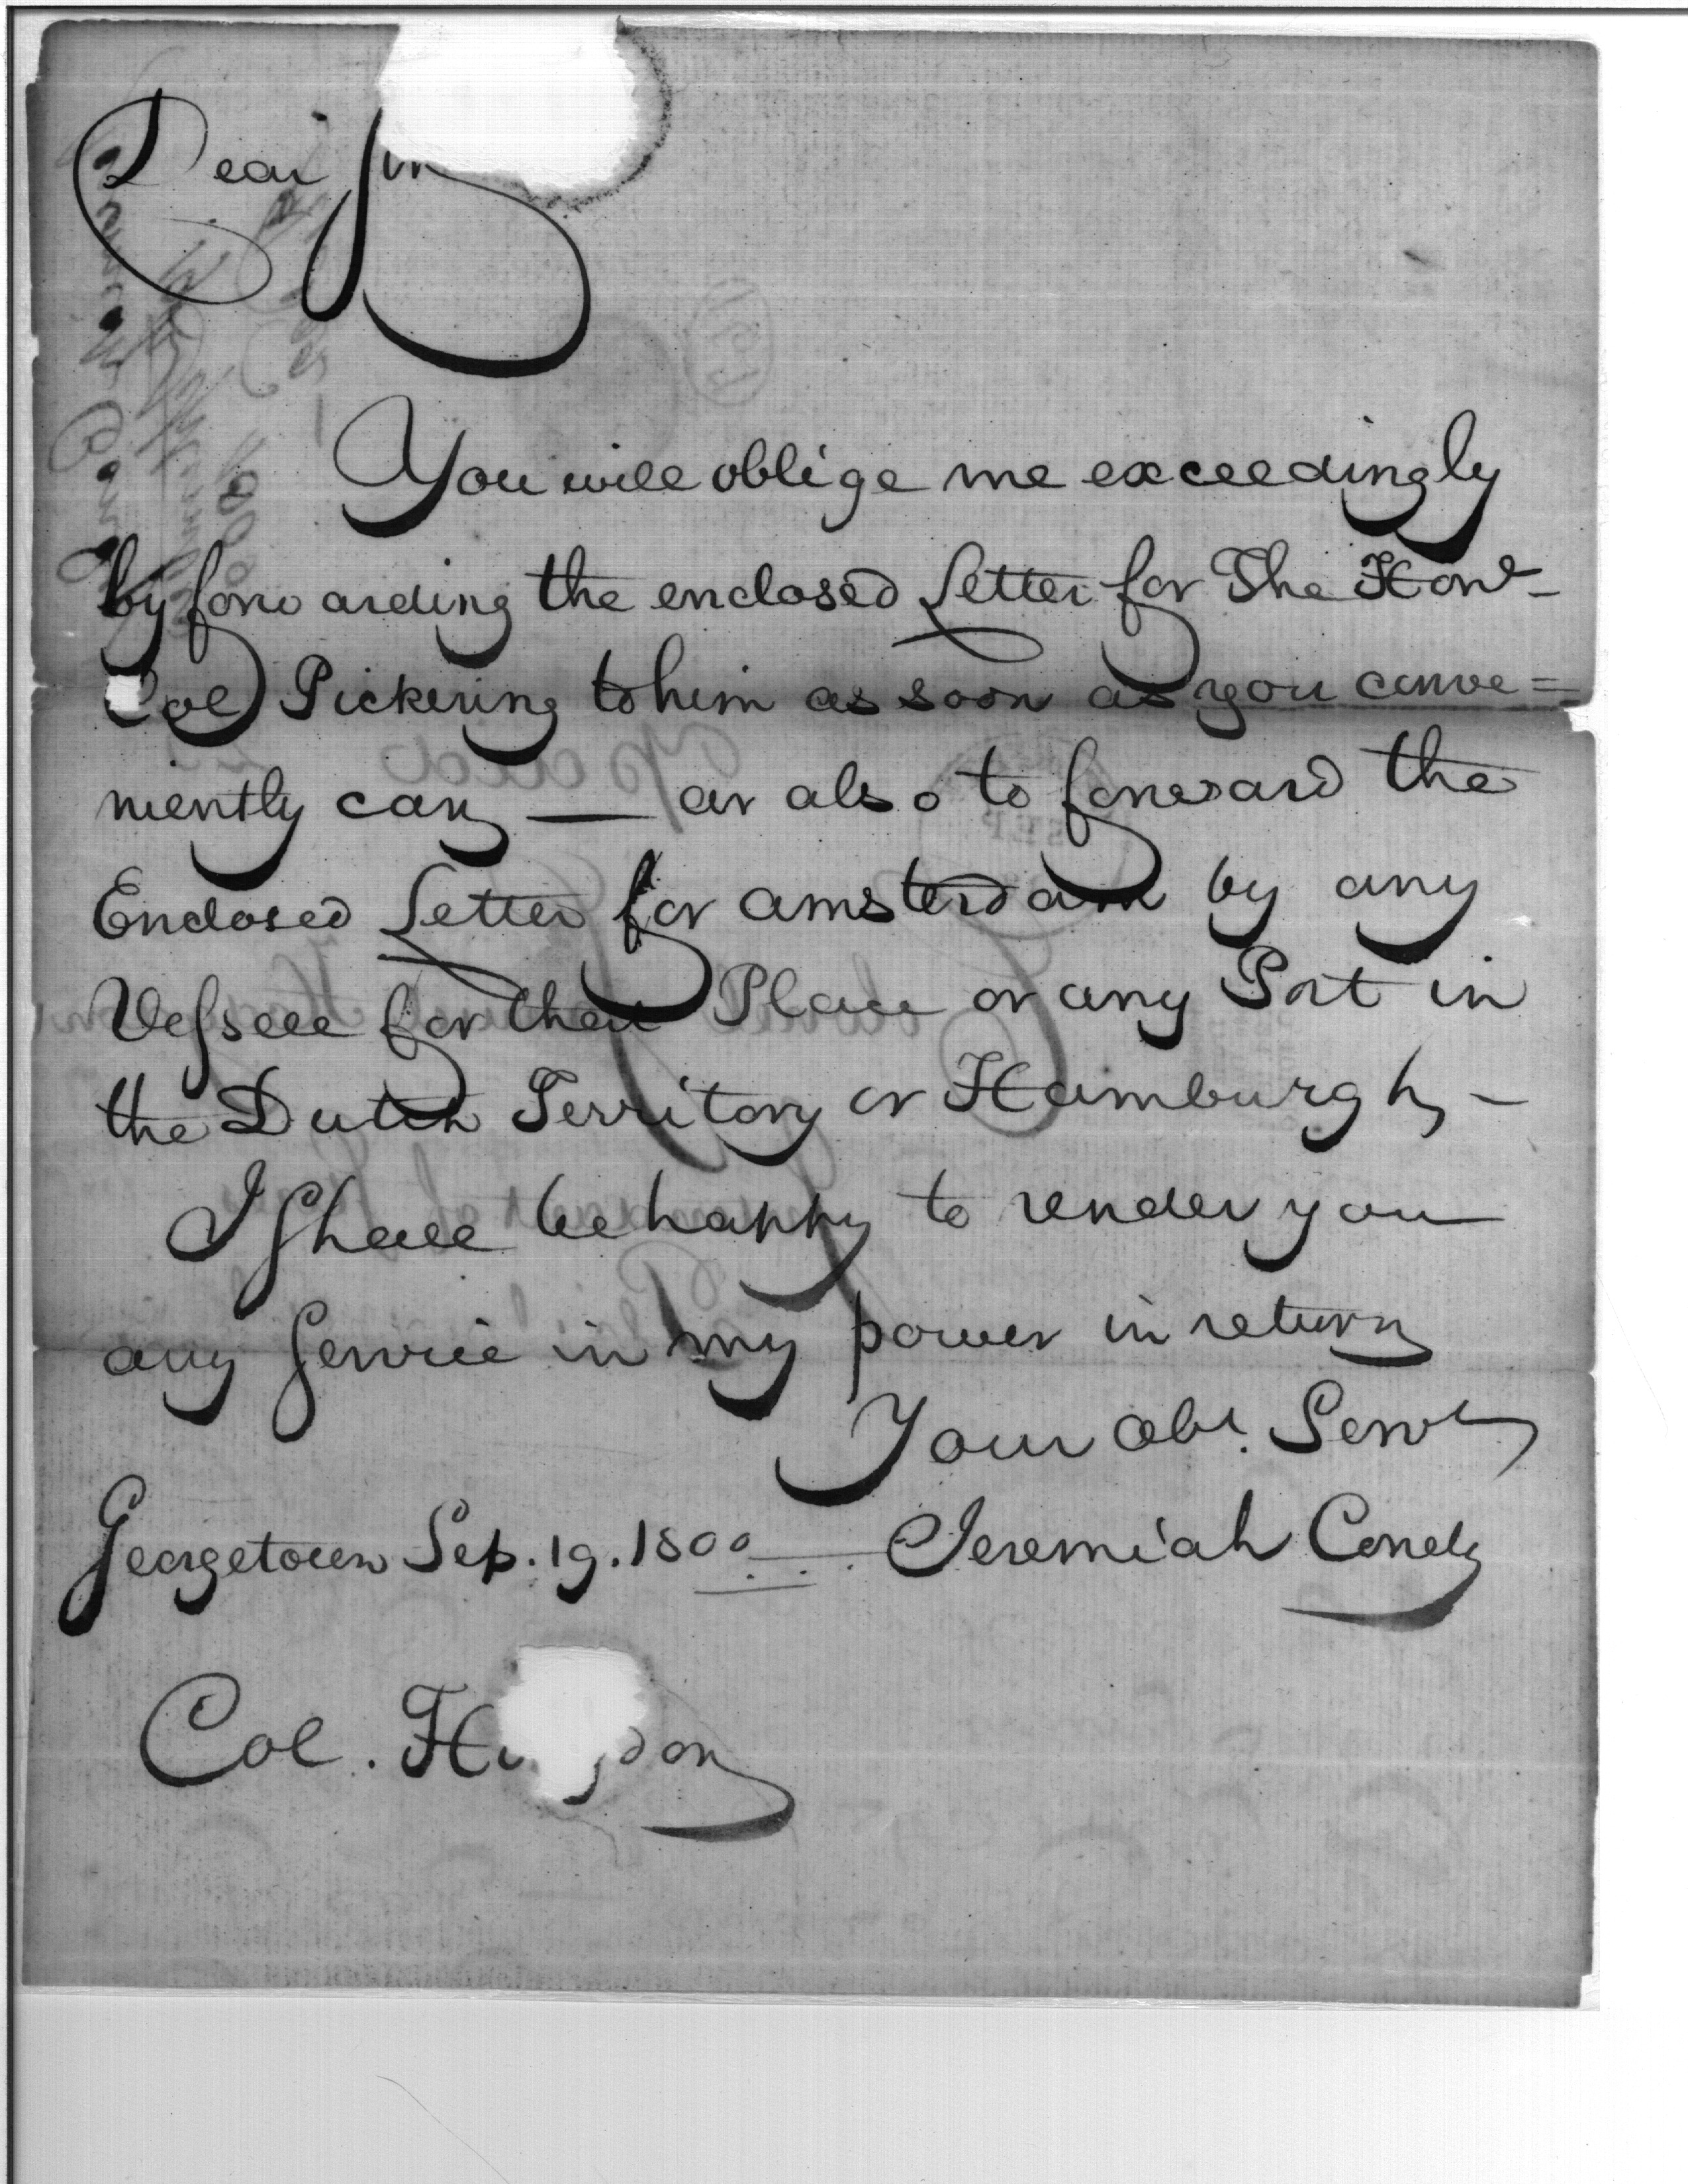 Dear Sir
You will oblige me exceedingly
by forwarding the enclosed Letter for The Honl
Col Pickering to him as soon as you conve=
niently can — as also to forward the
Enclosed Letter for amsterdam by any
Vessell for that Place or any Port in
the Dutch Territory or Hamburgh, —
I Shall be happy to render you
any Service in my power in return
Your obt. Servt
Georgetown Sep. 19. 1800 — Jeremiah Condy
Col. H don